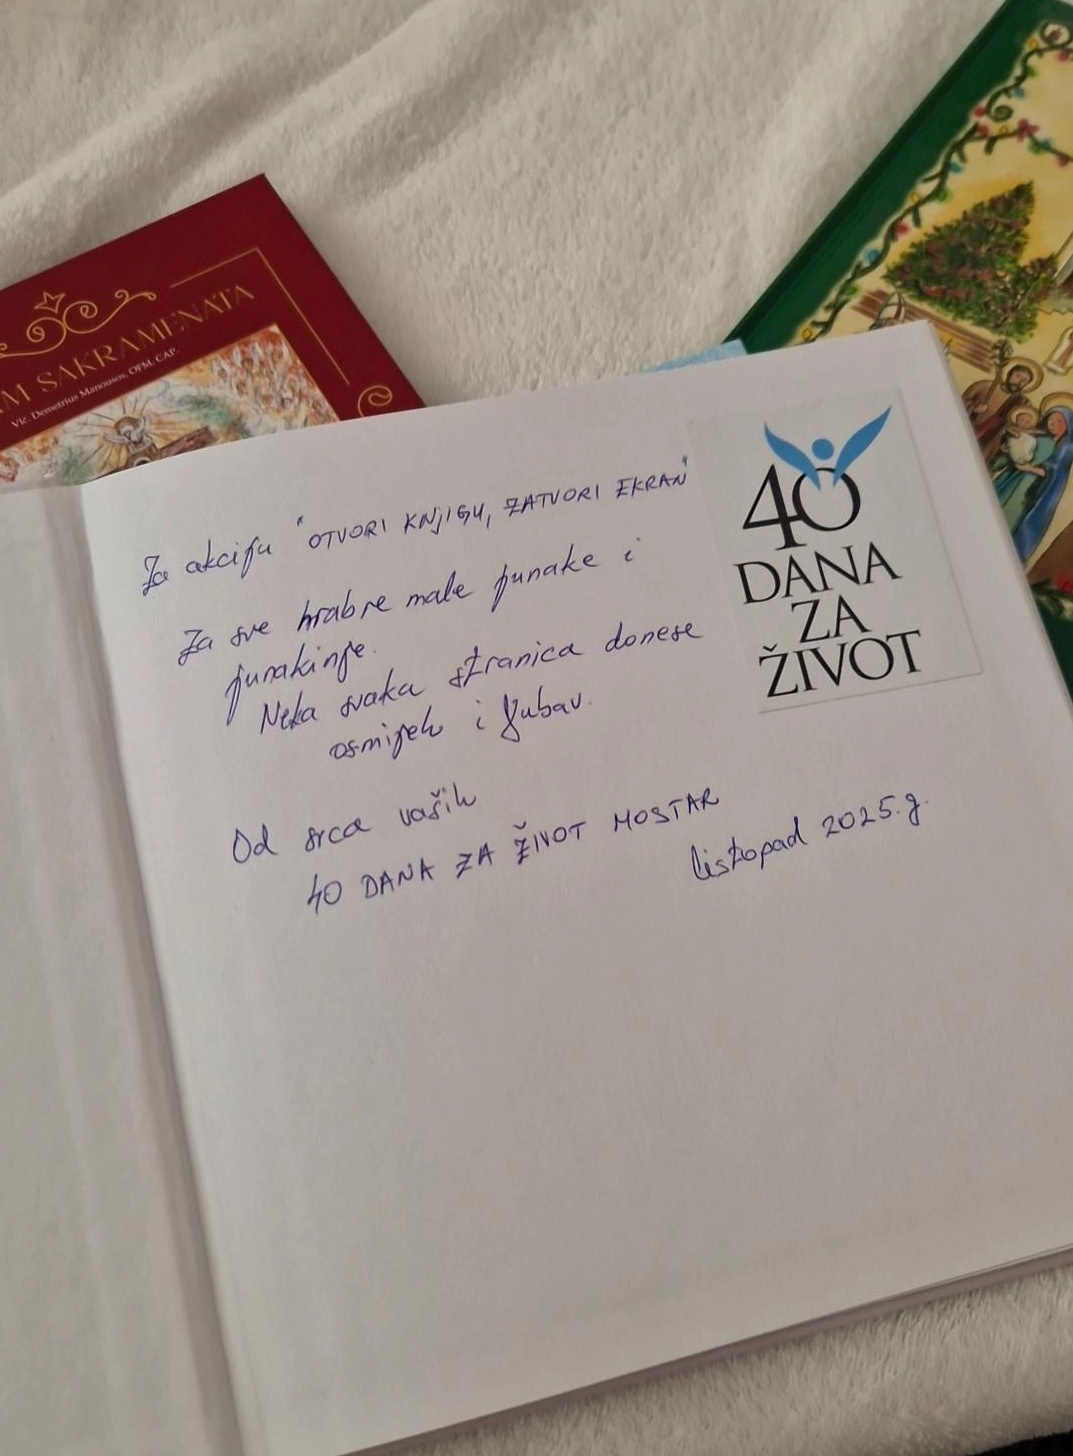 M SAKRAMENATA
Vlč. Demetrius Manousos, OFM. CAP.
Za akciju "OTVORI KNJIGU, ZATVORI EKRAN"
Za sve hrabre male junake i
junakinje.
Neka svaka stranica donese
osmijeh i ljubav.
Od srca vaših
40 DANA ZA ŽIVOT MOSTAR
listopad 2025.g.
40
DANA
ZA
ŽIVOT